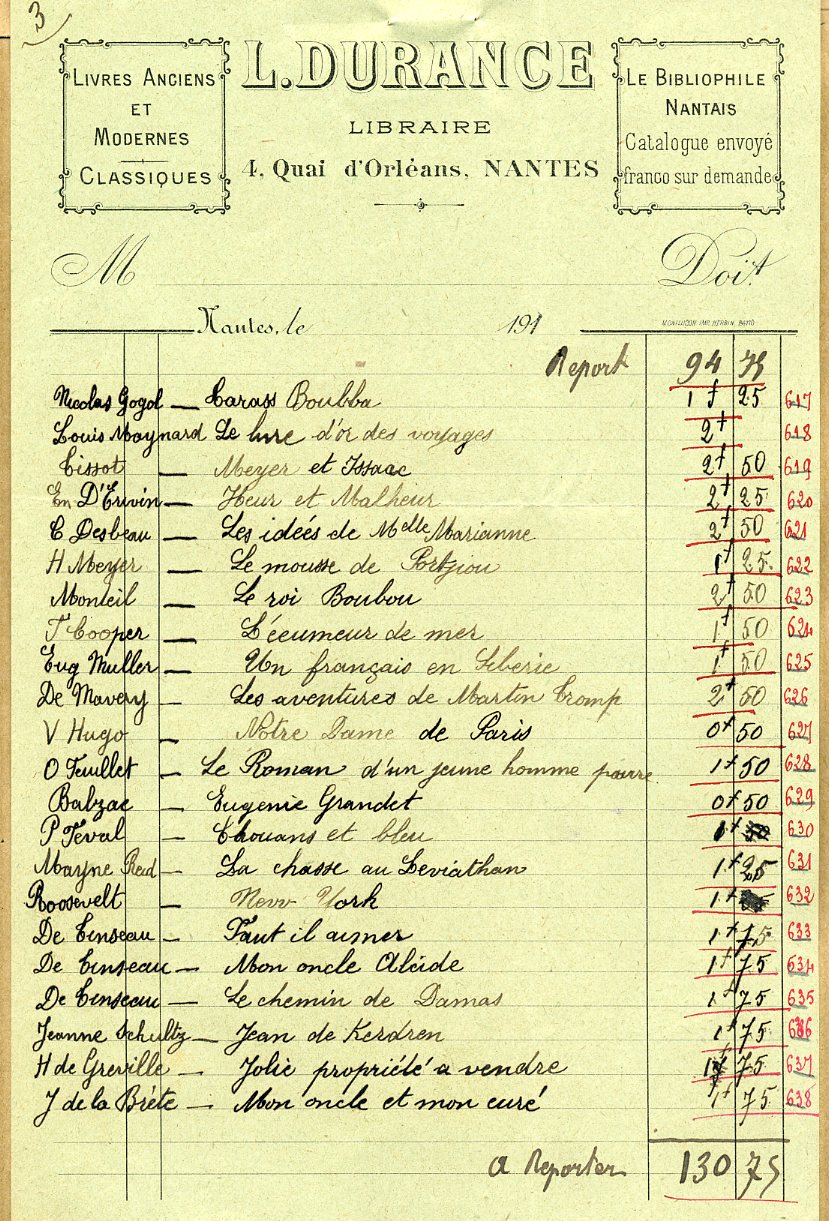 3
L. DURANCE
LIBRAIRE
4, Quai d'Orléans, NANTES
LIVRES ANCIENS
ET
MODERNES
CLASSIQUES
LE BIBLIOPHILE
NANTAIS
Catalogue envoyé
franco sur demande
M Doit
Nantes, le 191
MONTLUÇON IMP. HERBIN
Report 94 75
Nicolas Gogol — Tarass Boulba 1f 25 617
Louis Maynard Le livre d'or des voyages 2f 618
Tissot — Meyer et Issaac 2f 50 619
Em D'Erwin — Heur et Malheur 2f 25 620
C Desbeau — Les idées de Melle Marianne 2f 50 621
H Meyer — Le mousse de 1f 25 622
Monteil — Le roi Boubou 2f 50 623
F Cooper — L'écumeur de mer 1f 50 624
Eug Muller — Un français en Siberie 1f 50 625
De Mavery — Les aventures de Martin Tromp 2f 50 626
V Hugo — Notre Dame de Paris 0f 50 627
O Feuillet — Le Roman d'un jeune homme pauvre 1f 50 628
Balzac — Eugenie Grandet 0f 50 629
P Féval — Chouans et bleu 1f 630
Mayne Reid — La chasse au Leviathan 1f 25 631
Roosevelt — New York 1f 632
De Tinseau — Faut il aimer 1f 75 633
De Tinseau — Mon oncle Alcide 1f 75 634
De Tinseau — Le chemin de Damas 1f 75 635
Jeanne Schultz — Jean de Kerdren 1f 75 636
H de Greville — Jolie propriété a vendre 1f 75 637
J de la Brète — Mon oncle et mon curé 1f 75 638
a Reporter 130 75